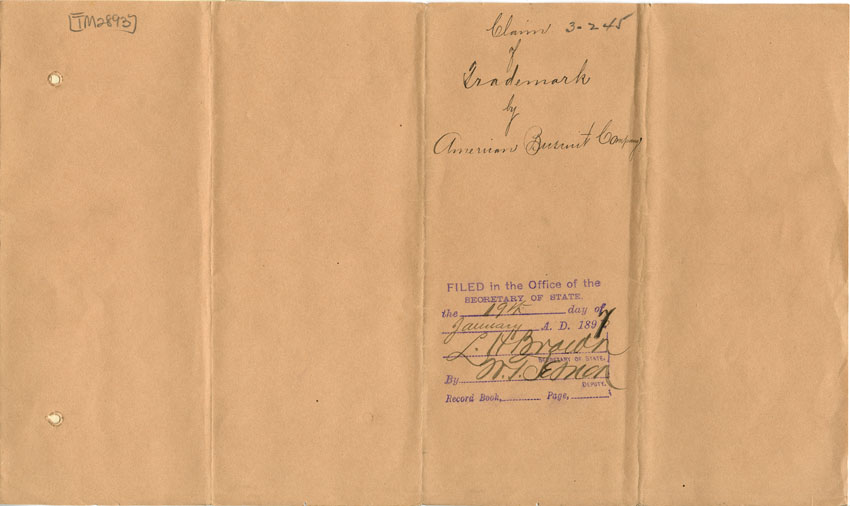 [TM2893]
Claim 3-245
of
Trademark
by
American Biscuit Company
FILED in the Office of the
SECRETARY OF STATE.
the 19th day of
January A. D. 1897
L. H. Brown
SECRETARY OF STATE.
By W. T.
DEPUTY.
Record Book, Page,